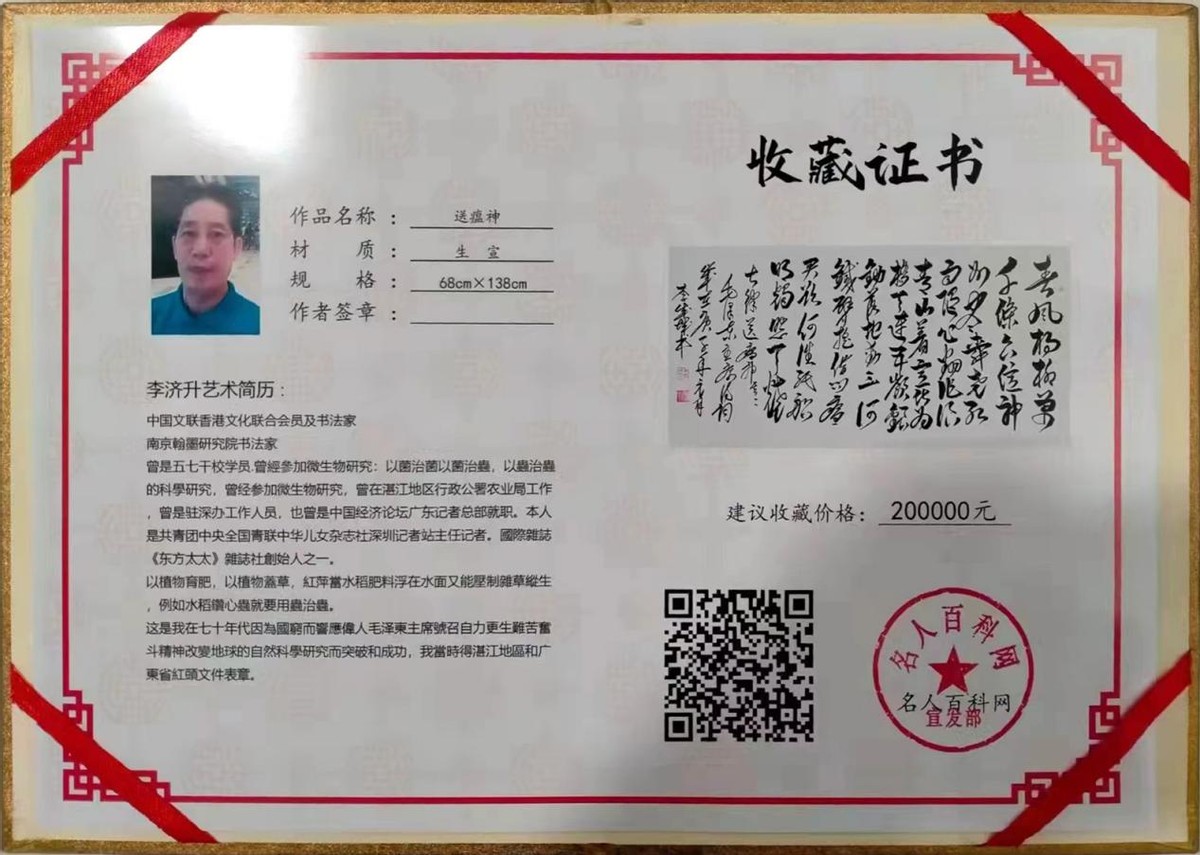 收藏证书
作品名称：送瘟神
材 质：生 宣
规 格：68cm×138cm
作者签章：
李济升艺术简历：
中国文联香港文化联合会员及书法家
南京翰墨研究院书法家
曾是五七干校学员.曾經參加微生物研究：以菌治菌以菌治蟲，以蟲治蟲
的科學研究，曾经参加微生物研究，曾在湛江地区行政公署农业局工作
，曾是驻深办工作人员，也曾是中国经济论坛广东记者总部就职。本人
是共青团中央全国青联中华儿女杂志社深圳记者站主任记者。國際雜誌
《东方太太》雜誌社創始人之一。
以植物育肥，以植物蓋草，紅萍當水稻肥料浮在水面又能壓制雜草縱生
，例如水稻鑽心蟲就要用蟲治蟲。
这是我在七十年代因為國窮而響應偉人毛泽東主席號召自力更生難苦奮
斗精神改變地球的自然科學研究而突破和成功，我當時得湛江地區和广
東省紅頭文件表章。
春风杨柳万
千條六亿神
州尽舜尧红
雨随心翻作浪
青山着意化为
桥天连五岭银
锄落地动三河
铁臂摇借问瘟
君欲何往纸船
明烛照天烧
七律送瘟神之二
毛泽东
建议收藏价格：200000元
名人百科网
名人百科网
宣发部